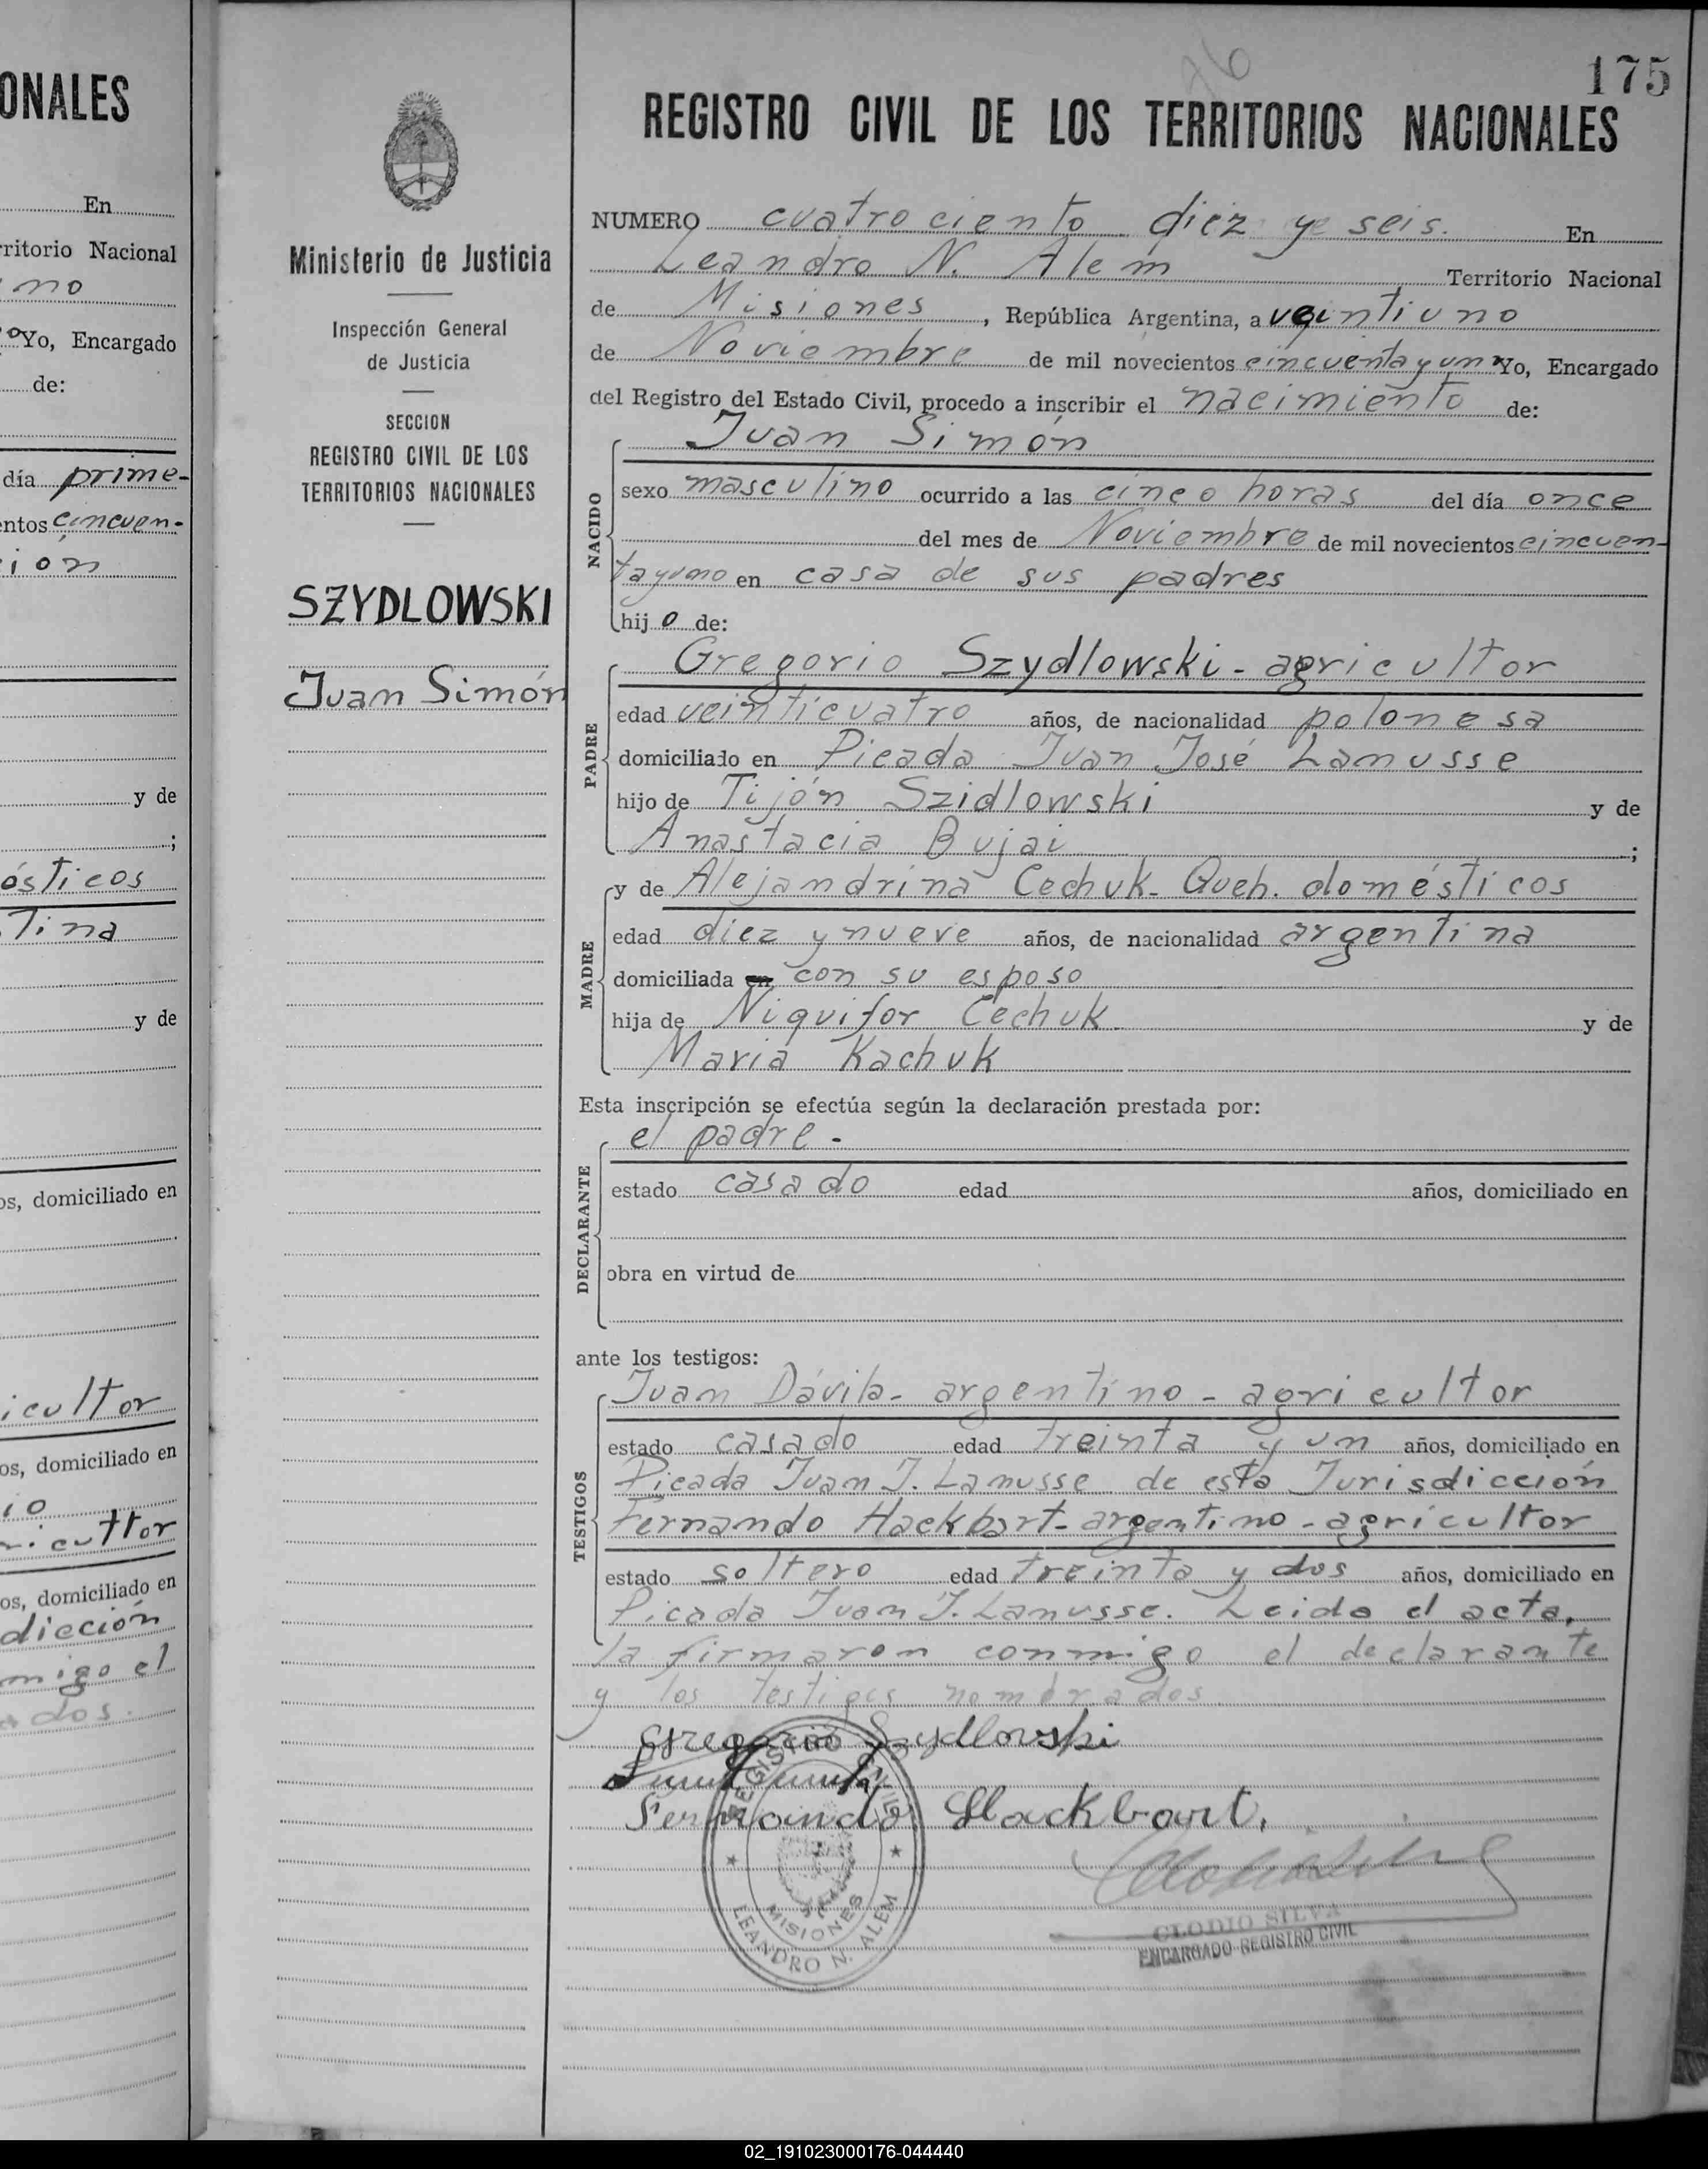 ONALES
En
rritorio Nacional
Yo, Encargado
de:
día prime-
entos cincuen-
y de
;
ósticos
tina
y de
os, domiciliado en
icultor
os, domiciliado en
ricultor
os, domiciliado en
dicción
migo el
ados.
Ministerio de Justicia
Inspección General
de Justicia
SECCION
REGISTRO CIVIL DE LOS
TERRITORIOS NACIONALES
SZYDLOWSKI
Juan Simón
175
REGISTRO CIVIL DE LOS TERRITORIOS NACIONALES
NUMERO cuatro ciento diez y seis. En
Leandro N. Alem Territorio Nacional
de Misiones, República Argentina, a veintiuno
de Noviembre de mil novecientos cincuenta y uno Yo, Encargado
del Registro del Estado Civil, procedo a inscribir el nacimiento de:
Juan Simón
NACIDO
sexo masculino ocurrido a las cinco horas del día once
del mes de Noviembre de mil novecientos cincuen-
ta y uno en casa de sus padres
hijo de:
Gregorio Szydlowski - agricultor
PADRE
edad veinticuatro años, de nacionalidad polonesa
domiciliado en Picada Juan José Lanusse
hijo de Tijón Szidlowski y de
Anastacia Bujai ;
y de Alejandrina Cechuk - Queh. domésticos
MADRE
edad diez y nueve años, de nacionalidad argentina
domiciliada en con su esposo
hija de Niquifor Cechuk y de
Maria Kachuk
Esta inscripción se efectúa según la declaración prestada por:
el padre.-
DECLARANTE
estado casado edad años, domiciliado en
obra en virtud de
ante los testigos:
Juan Dávila - argentino - agricultor
TESTIGOS
estado casado edad treinta y un años, domiciliado en
Picada Juan J. Lanusse de esta Jurisdicción
Fernando Hackbart - argentino - agricultor
estado soltero edad treinta y dos años, domiciliado en
Picada Juan J. Lanusse. Leida el acta,
la firmaron conmigo el declarante
y los testigos nombrados
Gregorio Szydlowski
Fernando Hackbart.
REGISTRO CIVIL
MISIONES
LEANDRO N. ALEM
CLODIO SILVA
ENCARGADO REGISTRO CIVIL
02_191023000176-044440